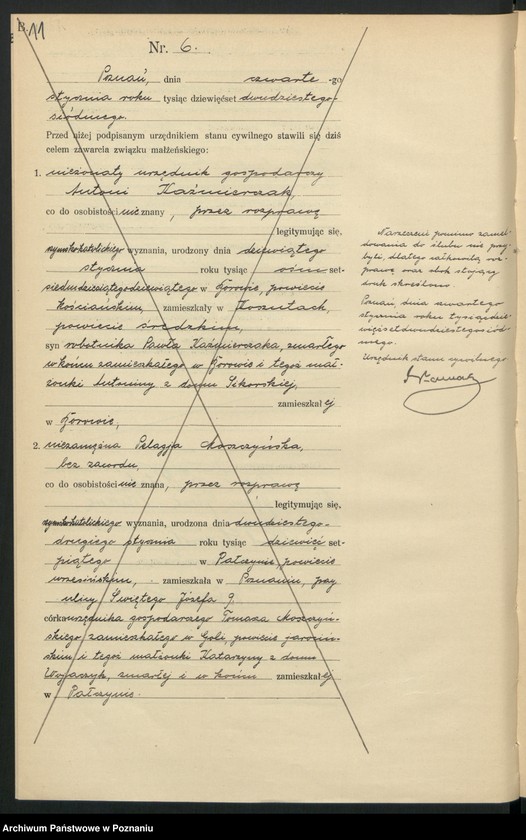 B.
11
Nr. 6.
Poznań, dnia czwarte -go
stycznia roku tysiąc dziewięćset dwudziestego
siódmego.
Przed niżej podpisanym urzędnikiem stanu cywilnego stawili się dziś
celem zawarcia związku małżeńskiego:
1. nieżonaty urzędnik gospodarczy
Antoni Kaźmierczak,
co do osobistości nie znany, przez rozprawę
legitymując się,
rzymsko katolickiego wyznania, urodzony dnia dziewiątego
stycznia roku tysiąc ośm set-
siedmdziesiątego dziewiątego w Żorowie, powiecie
kościańskim, zamieszkały w
powiecie średzkim,
syn robotnika Pawła Kaźmierczaka, zmarłego
w końcu zamieszkałego w Żorowie i tegoż mał-
żonki Antoniny z domu Sikorskiej,
zamieszkałej
w Żorowie,
2. niezamężna Pelagja Moszczyńska,
bez zawodu,
co do osobistości nie znana, przez rozprawę
legitymując się,
rzymsko katolickiego wyznania, urodzona dnia dwudziestego-
drugiego stycznia roku tysiąc dziewięć set-
piątego w Pałczynie, powiecie
wrzesińskim, zamieszkała w Poznaniu, przy
ulicy Świętego Józefa 9,
córka urzędnika gospodarczego Tomasza Moszczyń-
skiego zamieszkałego w Goli, powiecie
i tegoż małżonki Katarzyny z domu
zmarłej i w końcu zamieszkałej
w Pałczynie.
Narzeczeni pomimo zamel-
dowania do ślubu nie przy-
byli, dlatego całkowitą roz-
prawę oraz obok stojący
druk skreślono.
Poznań, dnia czwartego
stycznia roku tysiącdzie-
więćsetdwudziestegosiód-
mego.
Urzędnik stanu cywilnego
Archiwum Państwowe w Poznaniu